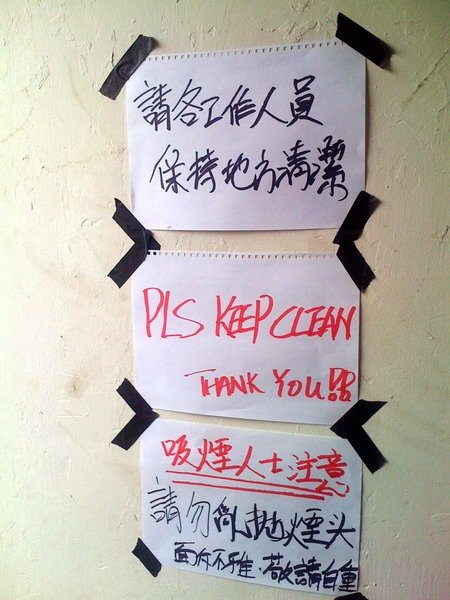 請各工作人員
保持地方清潔
PLS KEEP CLEAN
THANK YOU!!
吸煙人士注意
請勿亂拋煙头
面斥不雅·敬請自重